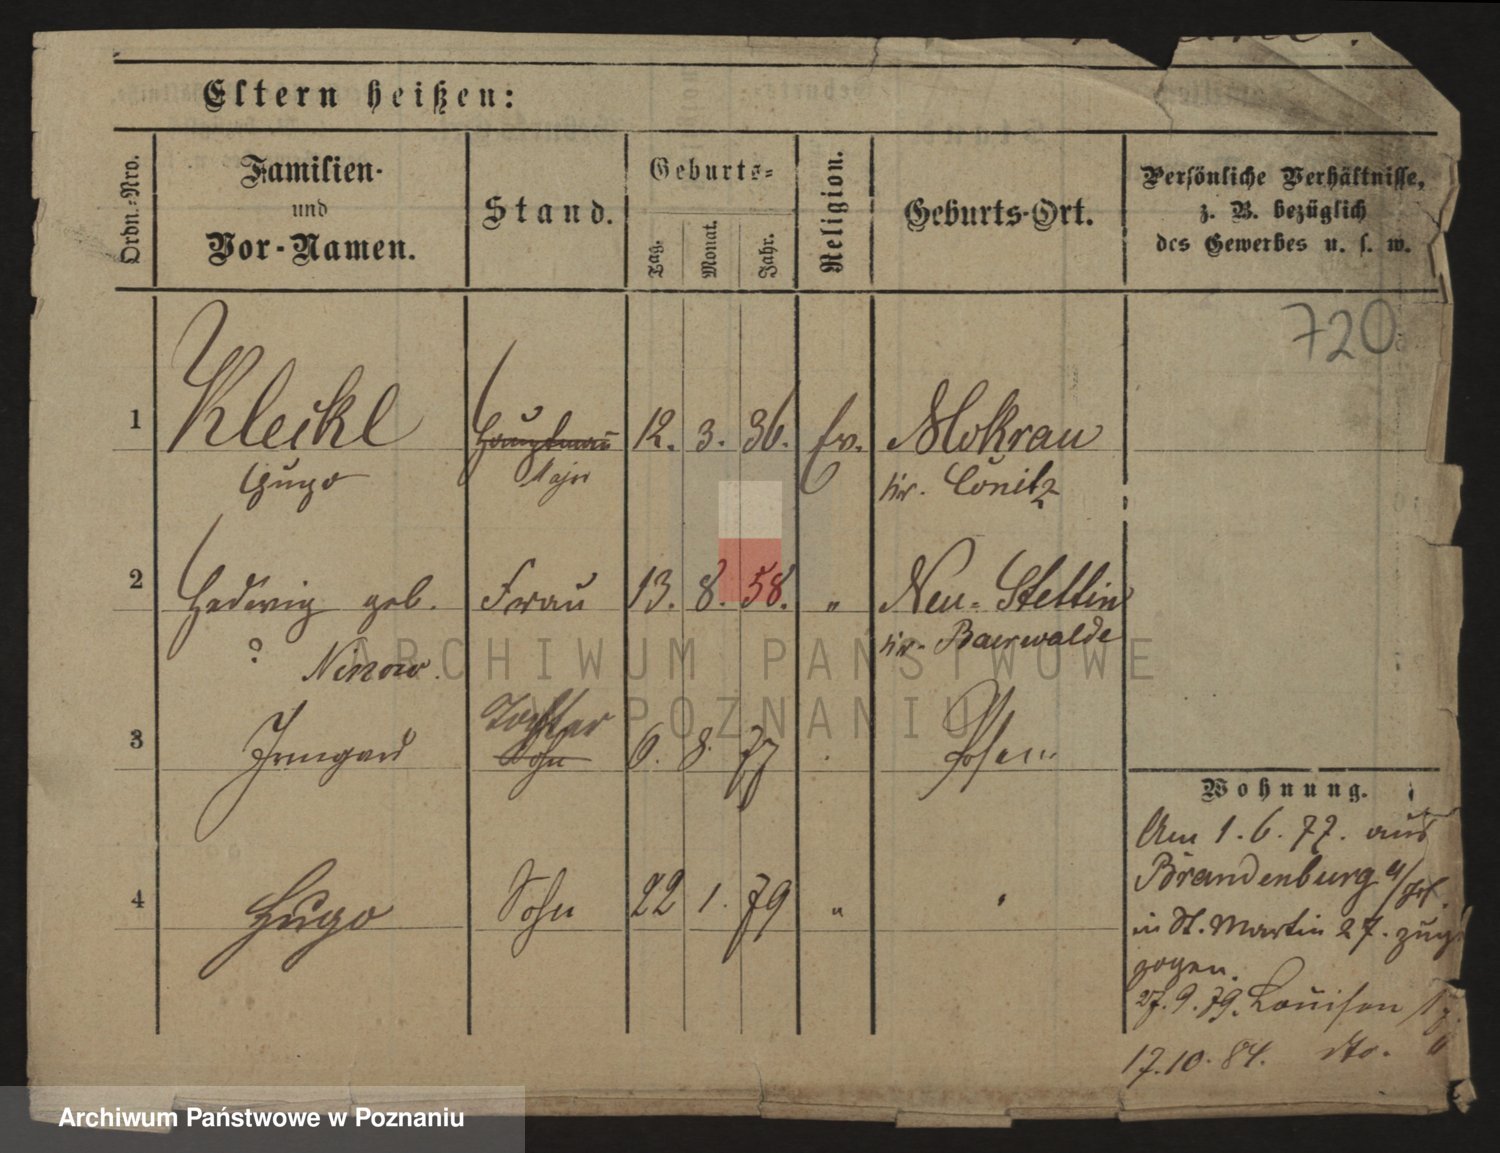 Eltern heißen:
Ordn.-Nro.
Familien-
und
Vor-Namen.
Stand.
Geburts-
Tag.
Monat.
Jahr.
Religion.
Geburts-Ort.
Persönliche Verhältnisse,
z. B. bezüglich
des Gewerbes u. s. w.
720
1 Kleikl Hauptmann 12. 3. 36. Ev. Mokrau
Hugo Major Kr. Conitz
2 Hedwig geb. Frau 13. 8. 58. " Neu-Stettin
? Ninow. Kr. Baerwalde
Tochter
3 Irmgard Sohn 6. 8. 77 Posen
Wohnung.
4 Hugo Sohn 22 1. 79 "
Am 1. 6. 77. aus
Brandenburg a/H.
in St. Martin 27. zuge
zogen.
27. 9. 79. Louisen 17.
17.10.84. dto. "
ARCHIWUM PAŃSTWOWE
W POZNANIU
Archiwum Państwowe w Poznaniu